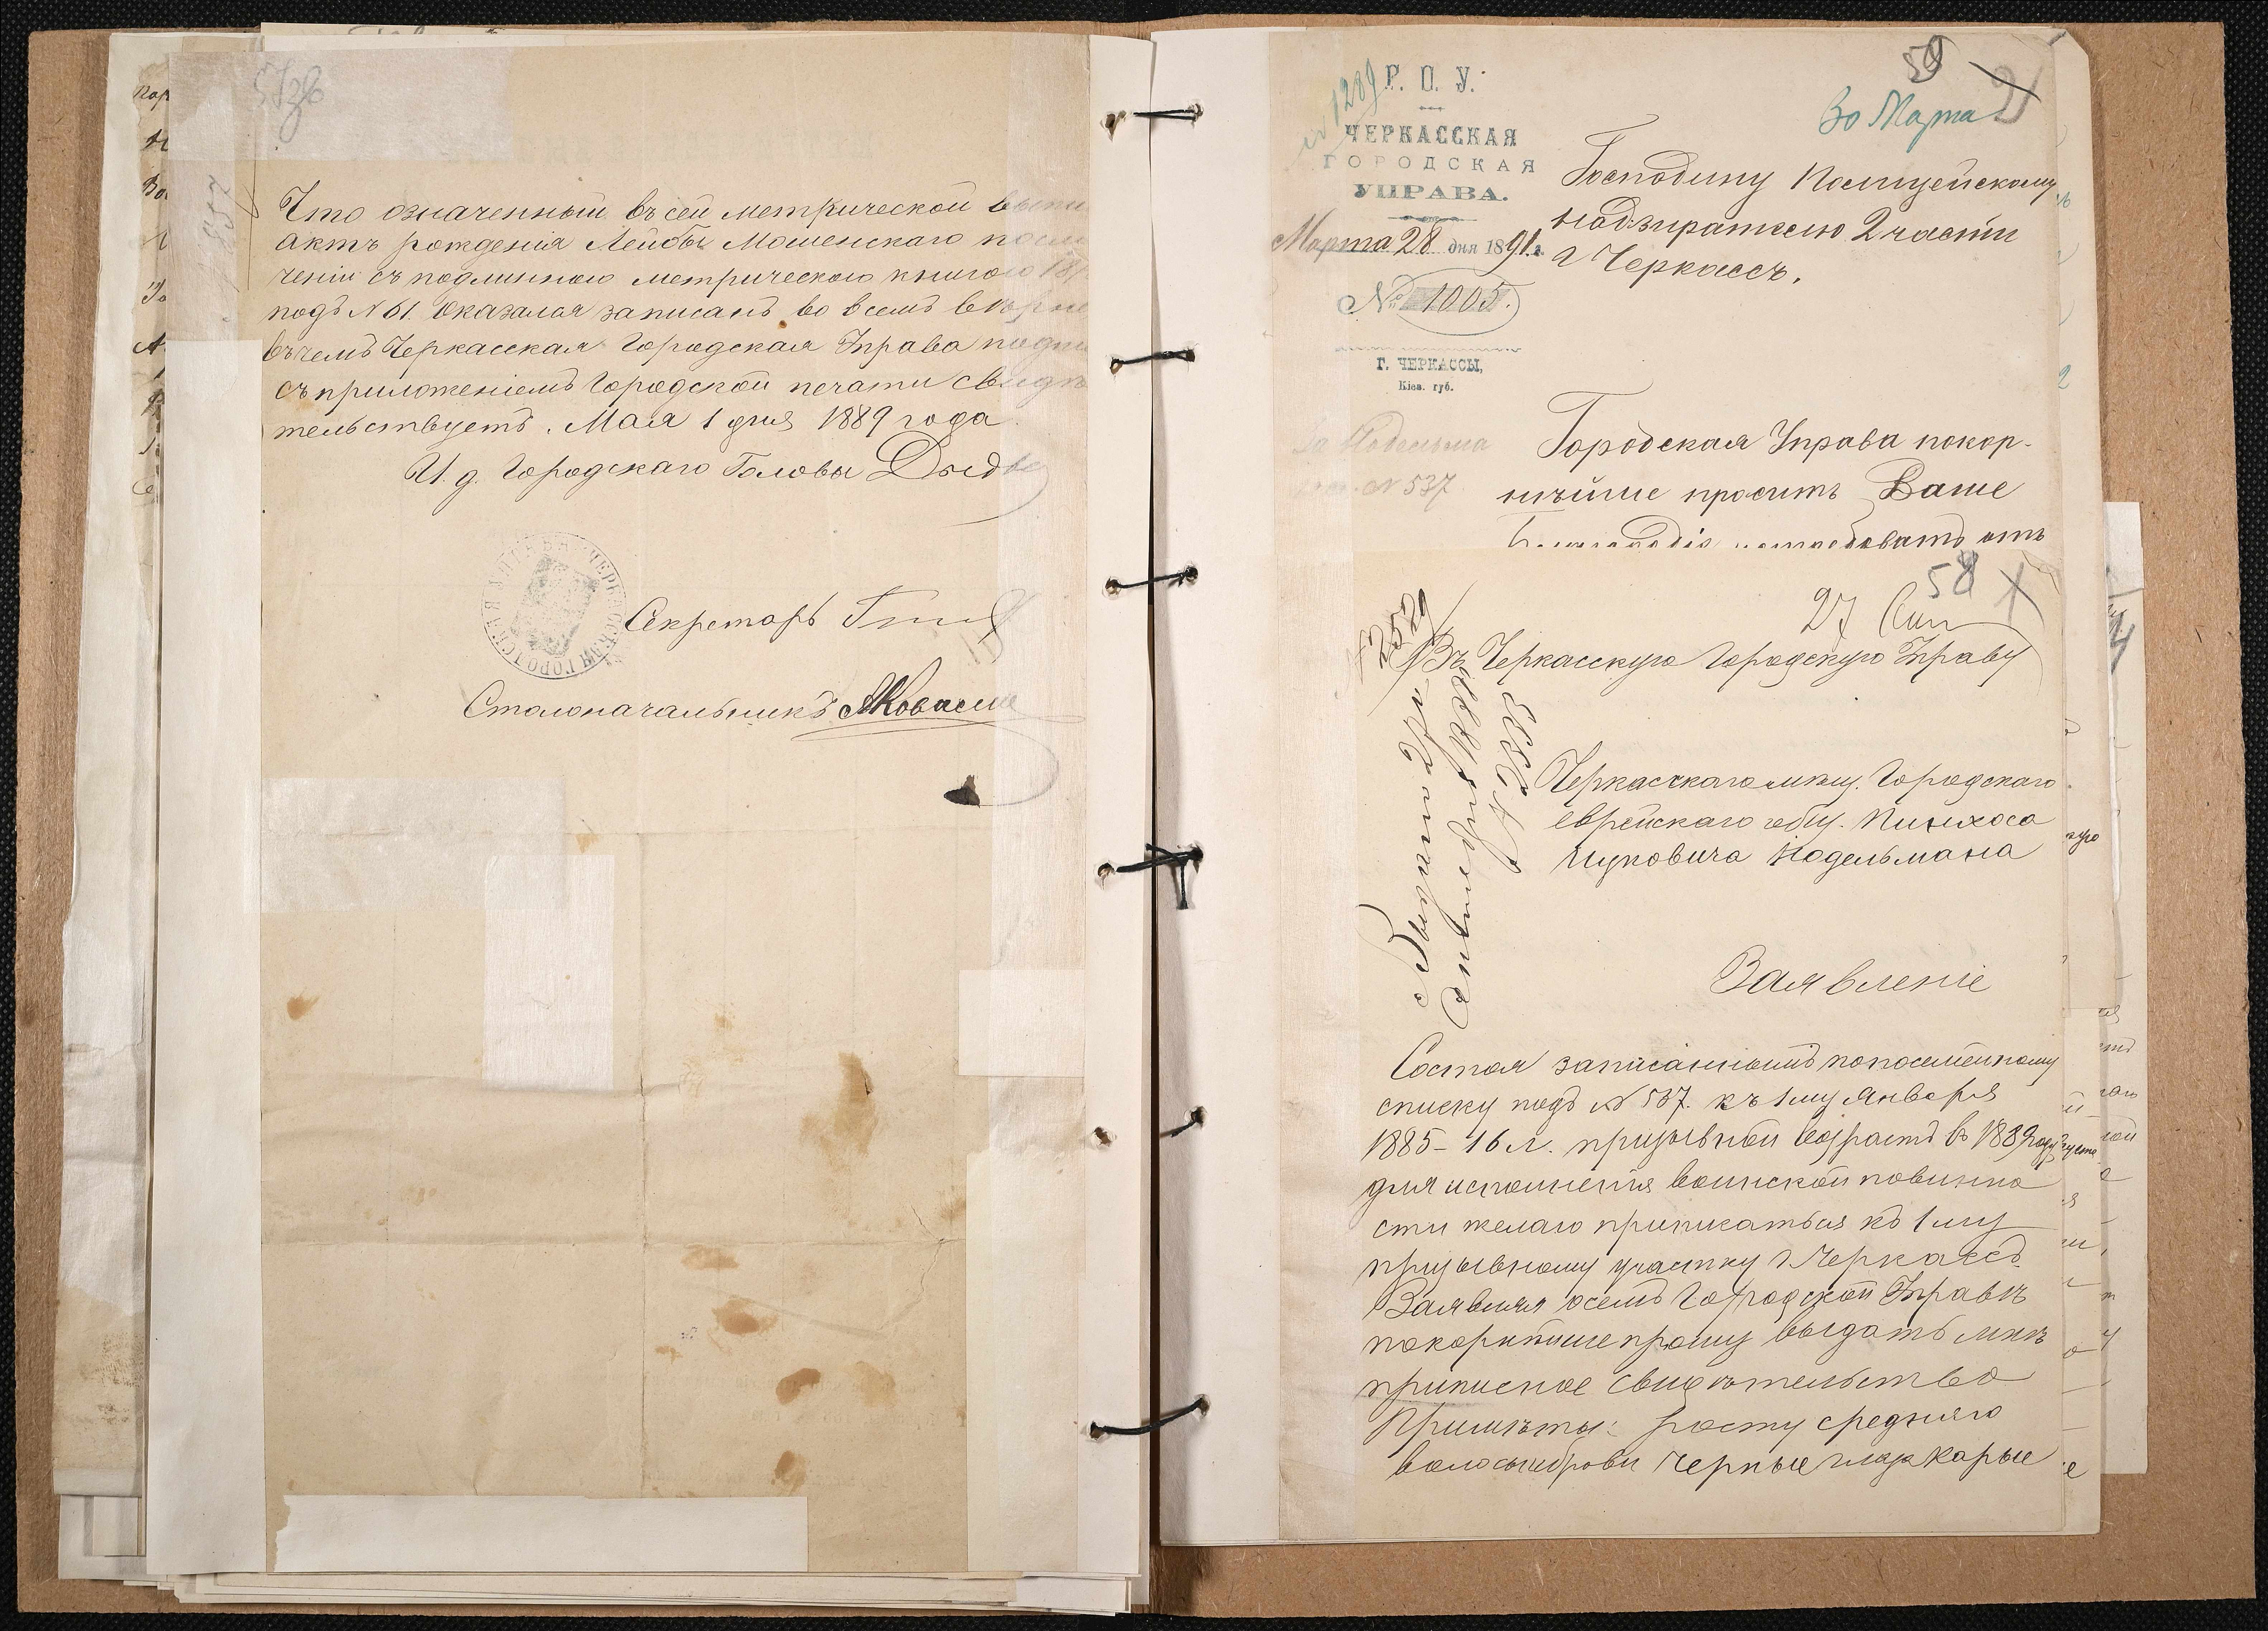 Что означенный въ сей метрической выпи
актъ рожденія Лейбы Мошенскаго по сли
ченіи съ подлинною метрическою книгою 187
подъ №61 оказался записанъ во всемъ вѣрно
въ чемъ Черкасская Городская Управа подпи
съ приложеніемъ Городской печати свидѣ
тельствуетъ. Мая 1 дня 1889 года
И. д. Городскаго Головы
Секретарь
Столоначальникъ
Г. П. У.
ЧЕРКАССКАЯ
ГОРОДСКАЯ
УПРАВА.
Марта 28 дня 1891 г.
№ 1005.
Г. ЧЕРКАССЫ,
Кіев. губ.
№ 1289
59
21
30 Марта
Господину Полицейскому
надзирателю 2 части
г Черкассъ.
Нодельма
№ 537
Городская Управа покор-
нѣйше проситъ Ваше
Благородіе потребовать отъ
58
27 Сен
№ 2529
Въ Черкасскую Городскую Управу
Выдано 27го
Сентября 1888 г.
№ 2335
Черкасскаго мѣщ. Городскаго
еврейскаго общ. Пинхоса
Ицковича Нодельмана
Заявленіе
Состоя записаннымъ по посемейному
списку подъ № 537. къ 1му Января
1885 - 16 л. призывной возрастъ въ 1889 году
для исполненія воинской повинно
сти желаю приписаться къ 1му
призывному участку г Черкассъ
Заявляя о семъ Городской Управѣ
покорнѣйше прошу выдать мнѣ
приписное свидѣтельство
Примѣты: росту средняго
волосы и брови черные глаза карые